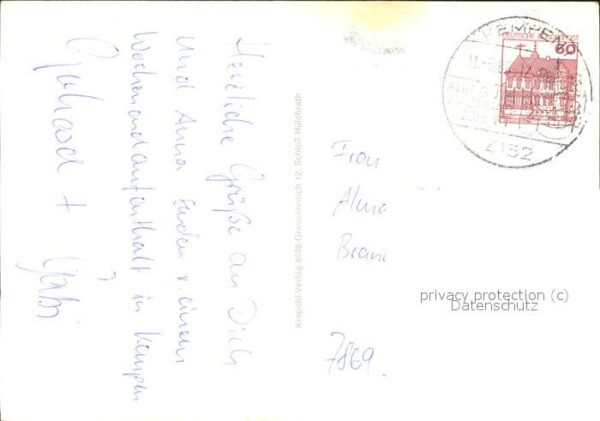 Herzliche Grüße an Dich
und Anna senden v. einem
Wochenendaufenthalt in Kempen
Gerhard + Gabi
Krapohl-Verlag 4048 Grevenbroich 12, Schloß Hülchrath
Frau
Alma
7869
KEMPEN
4152
DEUTSCHE BUNDESPOST
60
privacy protection (c)
Datenschutz